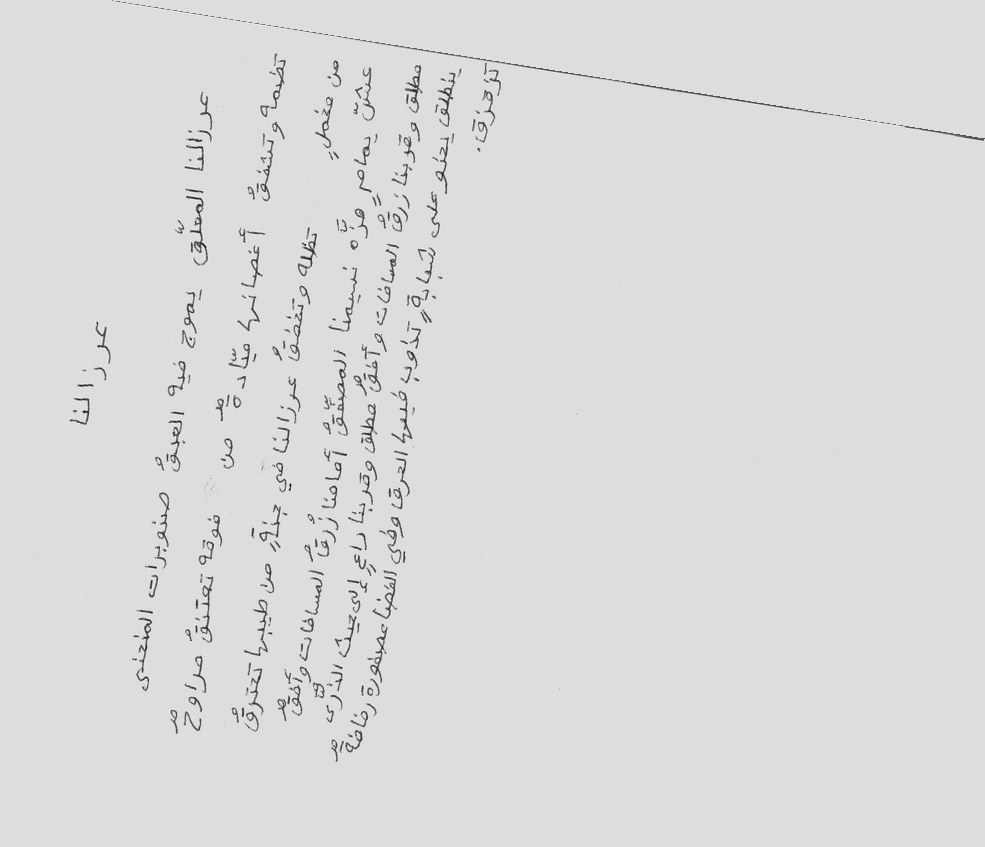 عرزالنا
عرزالنا المعلّق يموج فيه العبقُ صنوبرات المنحنى
تضمه وتشفقُ أغصانها ميّادةٌ من فوقه تعتنقُ مراوحٌ
من مخملٍ تظله وتخفقُ عرزالنا في جنةٍ من طيبها تحترقُ
عشّ يمامٍ هزّه نسيمنا المصفّقُ أمامنا زُرقُ المسافات وأفقٌ
مطلق وقربنا زرقُ المسافات وأفقٌ مطلق وقربنا راعٍ إلى حيث الذُّرى
ينطلق يحنو على شبابةٍ تذوب فيها الحرقا وفي الفضا عصفورة رفافةٌ
تزقزقا.